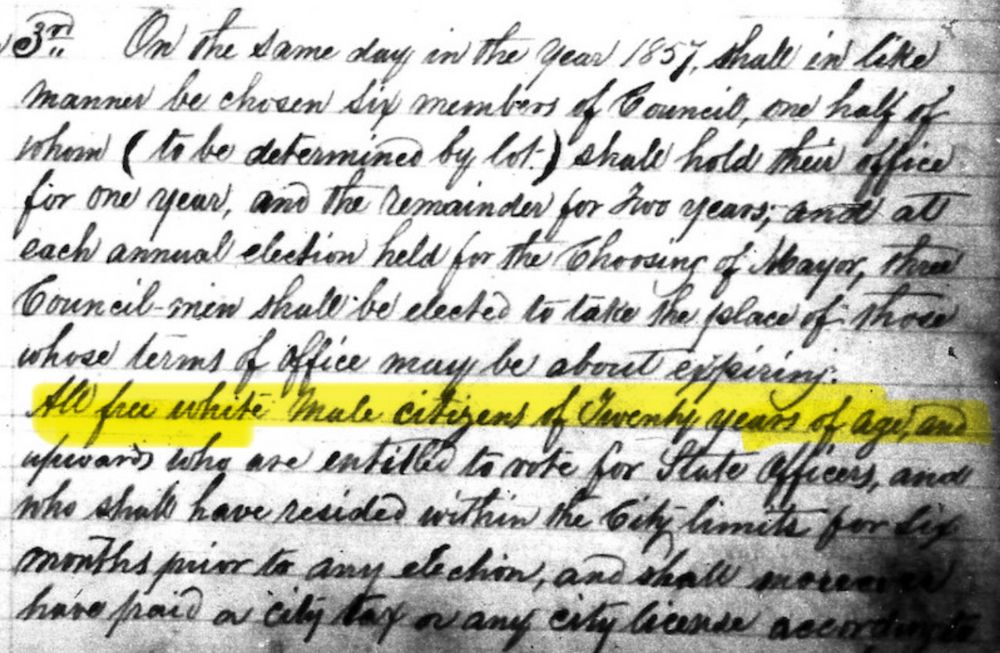 3rd.. On the same day in the Year 1857, shall in like
manner be chosen Six members of Council, one half of
whom (to be determined by lot.) shall hold their office
for one year, and the remainder for Two years; and at
each annual election held for the Choosing of Mayor, three
Council-men shall be elected to take the place of those
whose terms of Office may be about expiring.
All free white Male citizens of Twenty years of age, and
upwards who are entitled to vote for State Officers, and
who shall have resided within the City limits for Six
months prior to any election, and shall moreover
have paid a city tax or any city license according to